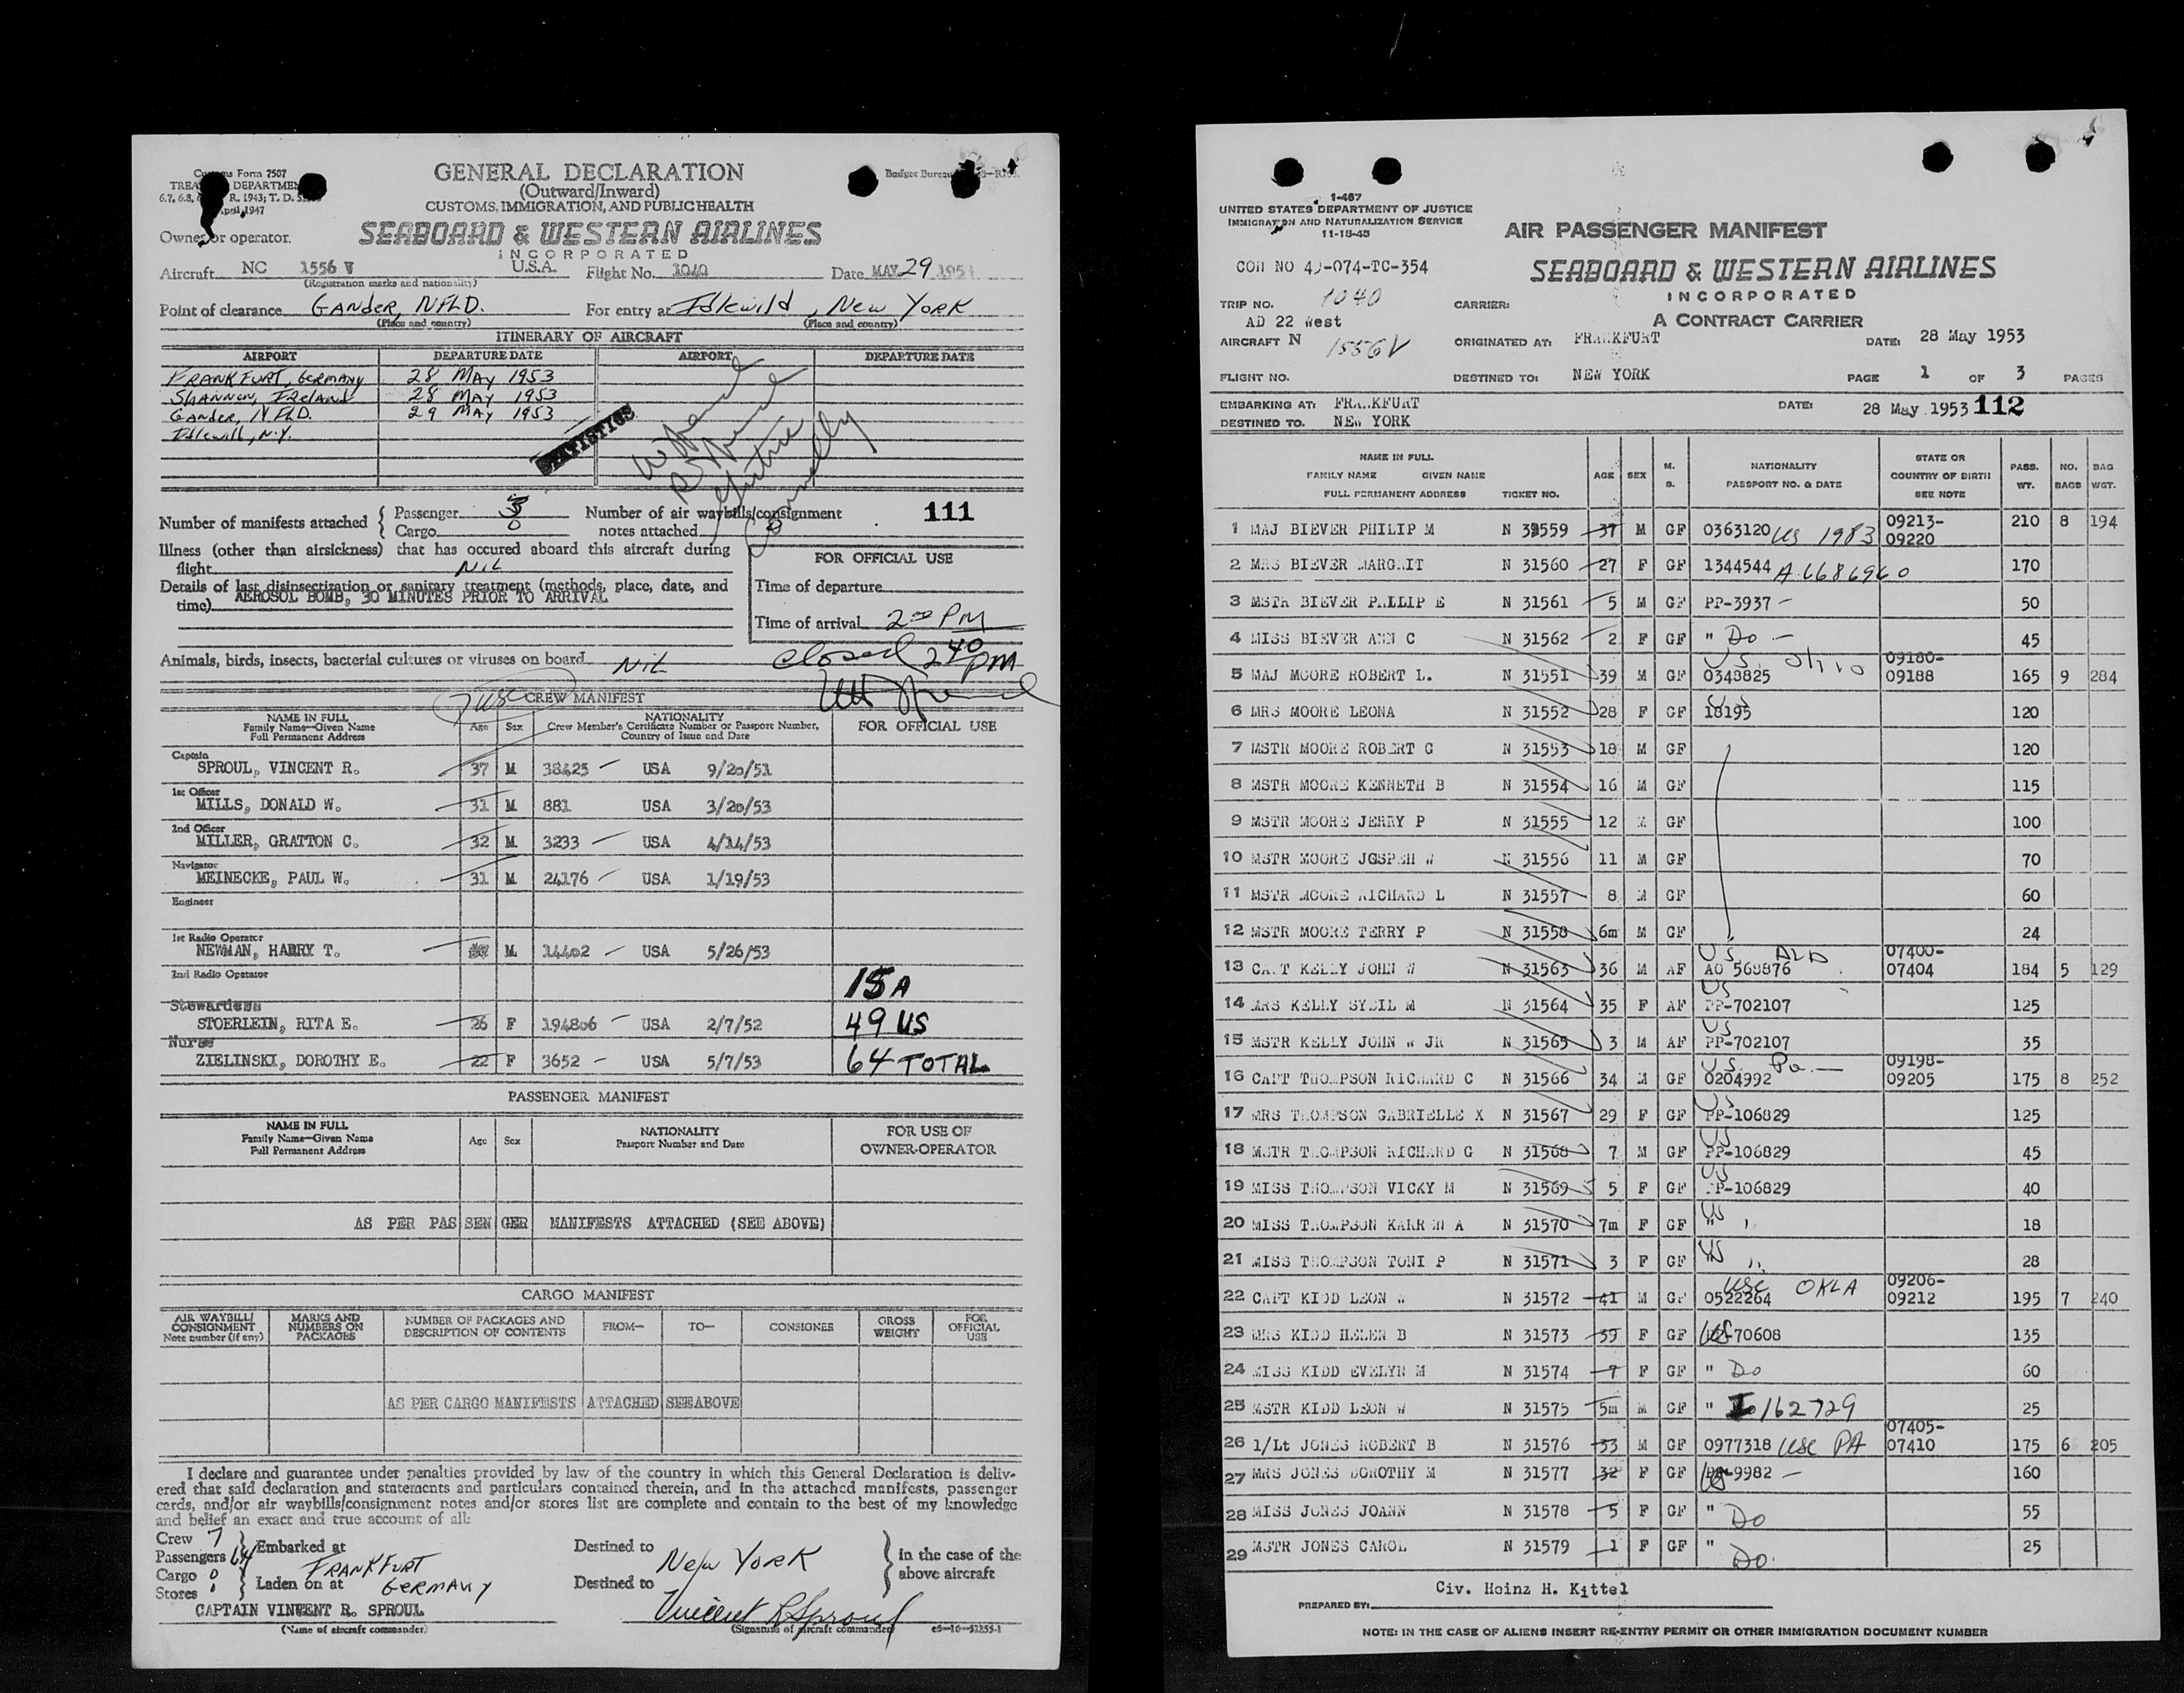 Customs Form 7507
TREASURY DEPARTMENT
6.7, 6.8, R. 1943; T. D.
April 1947
GENERAL DECLARATION
(Outward/Inward)
CUSTOMS, IMMIGRATION, AND PUBLIC HEALTH
Budget Bureau
Owner or operator.
SEABOARD & WESTERN AIRLINES
INCORPORATED
Aircraft NC 1556 V U.S.A. Flight No. 1040 Date MAY 29 1953
(Registration marks and nationality)
Point of clearance Gander, NFLD. For entry at Idlewild, New York
(Place and country) (Place and country)
ITINERARY OF AIRCRAFT
AIRPORT DEPARTURE DATE AIRPORT DEPARTURE DATE
FRANKFURT, GERMANY 28 MAY 1953
SHANNON, IRELAND 28 MAY 1953
Gander, NFLD. 29 MAY 1953
Idlewild, N.Y.
STATISTICS
Number of manifests attached { Passenger 3 Number of air waybills/consignment 111
Cargo 0 notes attached 0
Illness (other than airsickness) that has occured aboard this aircraft during
flight Nil
FOR OFFICIAL USE
Details of last disinsectization or sanitary treatment (methods, place, date, and
time) AEROSOL BOMB, 30 MINUTES PRIOR TO ARRIVAL
Time of departure
Time of arrival 2 00 PM
Closed 2 40 PM
Animals, birds, insects, bacterial cultures or viruses on board Nil
7 USC CREW MANIFEST
NAME IN FULL Age Sex NATIONALITY FOR OFFICIAL USE
Family Name—Given Name Crew Member's Certificate Number or Passport Number,
Full Permanent Address Country of Issue and Date
Captain
SPROUL, VINCENT R. 37 M 38425 — USA 9/20/51
1st Officer
MILLS, DONALD W. 31 M 881 USA 3/20/53
2nd Officer
MILLER, GRATTON C. 32 M 3233 — USA 4/14/53
Navigator
MEINECKE, PAUL W. 31 M 24176 — USA 1/19/53
Engineer
1st Radio Operator
NEWMAN, HARRY T. M 14402 — USA 5/26/53
2nd Radio Operator
15 A
Stewardess
STOERLEIN, RITA E. 26 F 194806 — USA 2/7/52 49 US
Nurse
ZIELINSKI, DOROTHY E. 22 F 3652 — USA 5/7/53 64 TOTAL
PASSENGER MANIFEST
NAME IN FULL Age Sex NATIONALITY FOR USE OF
Family Name—Given Name Passport Number and Date OWNER-OPERATOR
Full Permanent Address
AS PER PASSENGER MANIFESTS ATTACHED (SEE ABOVE)
CARGO MANIFEST
AIR WAYBILL/ MARKS AND NUMBER OF PACKAGES AND FROM— TO— CONSIGNEE GROSS FOR
CONSIGNMENT NUMBERS ON DESCRIPTION OF CONTENTS WEIGHT OFFICIAL
Note number (if any) PACKAGES USE
AS PER CARGO MANIFESTS ATTACHED SEE ABOVE
I declare and guarantee under penalties provided by law of the country in which this General Declaration is deliv-
ered that said declaration and statements and particulars contained therein, and in the attached manifests, passenger
cards, and/or air waybills/consignment notes and/or stores list are complete and contain to the best of my knowledge
and belief an exact and true account of all:
Crew 7
Passengers 64 Embarked at FRANKFURT Destined to New York in the case of the
Cargo 0 Laden on at GERMANY Destined to above aircraft
Stores
CAPTAIN VINCENT R. SPROUL Vincent R Sproul
(Name of aircraft commander) (Signature of aircraft commander)
1-467
UNITED STATES DEPARTMENT OF JUSTICE
IMMIGRATION AND NATURALIZATION SERVICE
11-15-45
AIR PASSENGER MANIFEST
CON NO 49-074-TC-354
SEABOARD & WESTERN AIRLINES
INCORPORATED
TRIP NO. 1040 CARRIER:
AD 22 West A CONTRACT CARRIER
AIRCRAFT N 1556V ORIGINATED AT: FRANKFURT DATE: 28 May 1953
FLIGHT NO. DESTINED TO: NEW YORK PAGE 1 OF 3 PAGES
EMBARKING AT: FRANKFURT DATE: 28 May 1953 112
DESTINED TO. NEW YORK
NAME IN FULL AGE SEX M. S. NATIONALITY STATE OR PASS. NO. BAG
FAMILY NAME GIVEN NAME PASSPORT NO. & DATE COUNTRY OF BIRTH WT. BAGS WGT.
FULL PERMANENT ADDRESS TICKET NO. SEE NOTE
1 MAJ BIEVER PHILIP M N 31559 37 M GF 0363120 US 1983 09213-09220 210 8 194
2 MRS BIEVER MARGRIT N 31560 27 F GF 1344544 A6686960 170
3 MSTR BIEVER PHLLIP E N 31561 5 M GF PP-3937 — 50
4 MISS BIEVER ANN C N 31562 2 F GF " Do — 45
5 MAJ MOORE ROBERT L. N 31551 39 M GF 0348825 US Ohio 09180-09188 165 9 284
6 MRS MOORE LEONA N 31552 28 F GF US 18195 120
7 MSTR MOORE ROBERT G N 31553 18 M GF 120
8 MSTR MOORE KENNETH B N 31554 16 M GF 115
9 MSTR MOORE JERRY P N 31555 12 M GF 100
10 MSTR MOORE JOSPEH W N 31556 11 M GF 70
11 MSTR MOORE RICHARD L N 31557 8 M GF 60
12 MSTR MOORE TERRY P N 31558 6m M GF 24
13 CAPT KELLY JOHN W N 31563 36 M AF US AO 568876 07400-07404 184 5 129
14 MRS KELLY SYBIL M N 31564 35 F AF US PP-702107 125
15 MSTR KELLY JOHN W JR N 31565 3 M AF US PP-702107 35
16 CAPT THOMPSON RICHARD C N 31566 34 M GF US Pa. — 0204992 09198-09205 175 8 252
17 MRS THOMPSON GABRIELLE X N 31567 29 F GF US PP-106829 125
18 MSTR THOMPSON RICHARD G N 31568 7 M GF US PP-106829 45
19 MISS THOMPSON VICKY M N 31569 5 F GF US PP-106829 40
20 MISS THOMPSON KARREN A N 31570 7m F GF US " " 18
21 MISS THOMPSON TONI P N 31571 3 F GF US " 28
22 CAPT KIDD LEON W N 31572 41 M GF USC OKLA 0522264 09206-09212 195 7 240
23 MRS KIDD HELEN B N 31573 39 F GF US 70608 135
24 MISS KIDD EVELYN M N 31574 7 F GF " Do 60
25 MSTR KIDD LEON W N 31575 5m M GF " I 162729 25
26 1/Lt JONES ROBERT B N 31576 33 M GF 0977318 USC PA 07405-07410 175 6 205
27 MRS JONES DOROTHY M N 31577 32 F GF 9982 — 160
28 MISS JONES JOANN N 31578 5 F GF " Do 55
29 MSTR JONES CAROL N 31579 1 F GF " Do. 25
Civ. Heinz H. Kittel
PREPARED BY:
NOTE: IN THE CASE OF ALIENS INSERT RE-ENTRY PERMIT OR OTHER IMMIGRATION DOCUMENT NUMBER